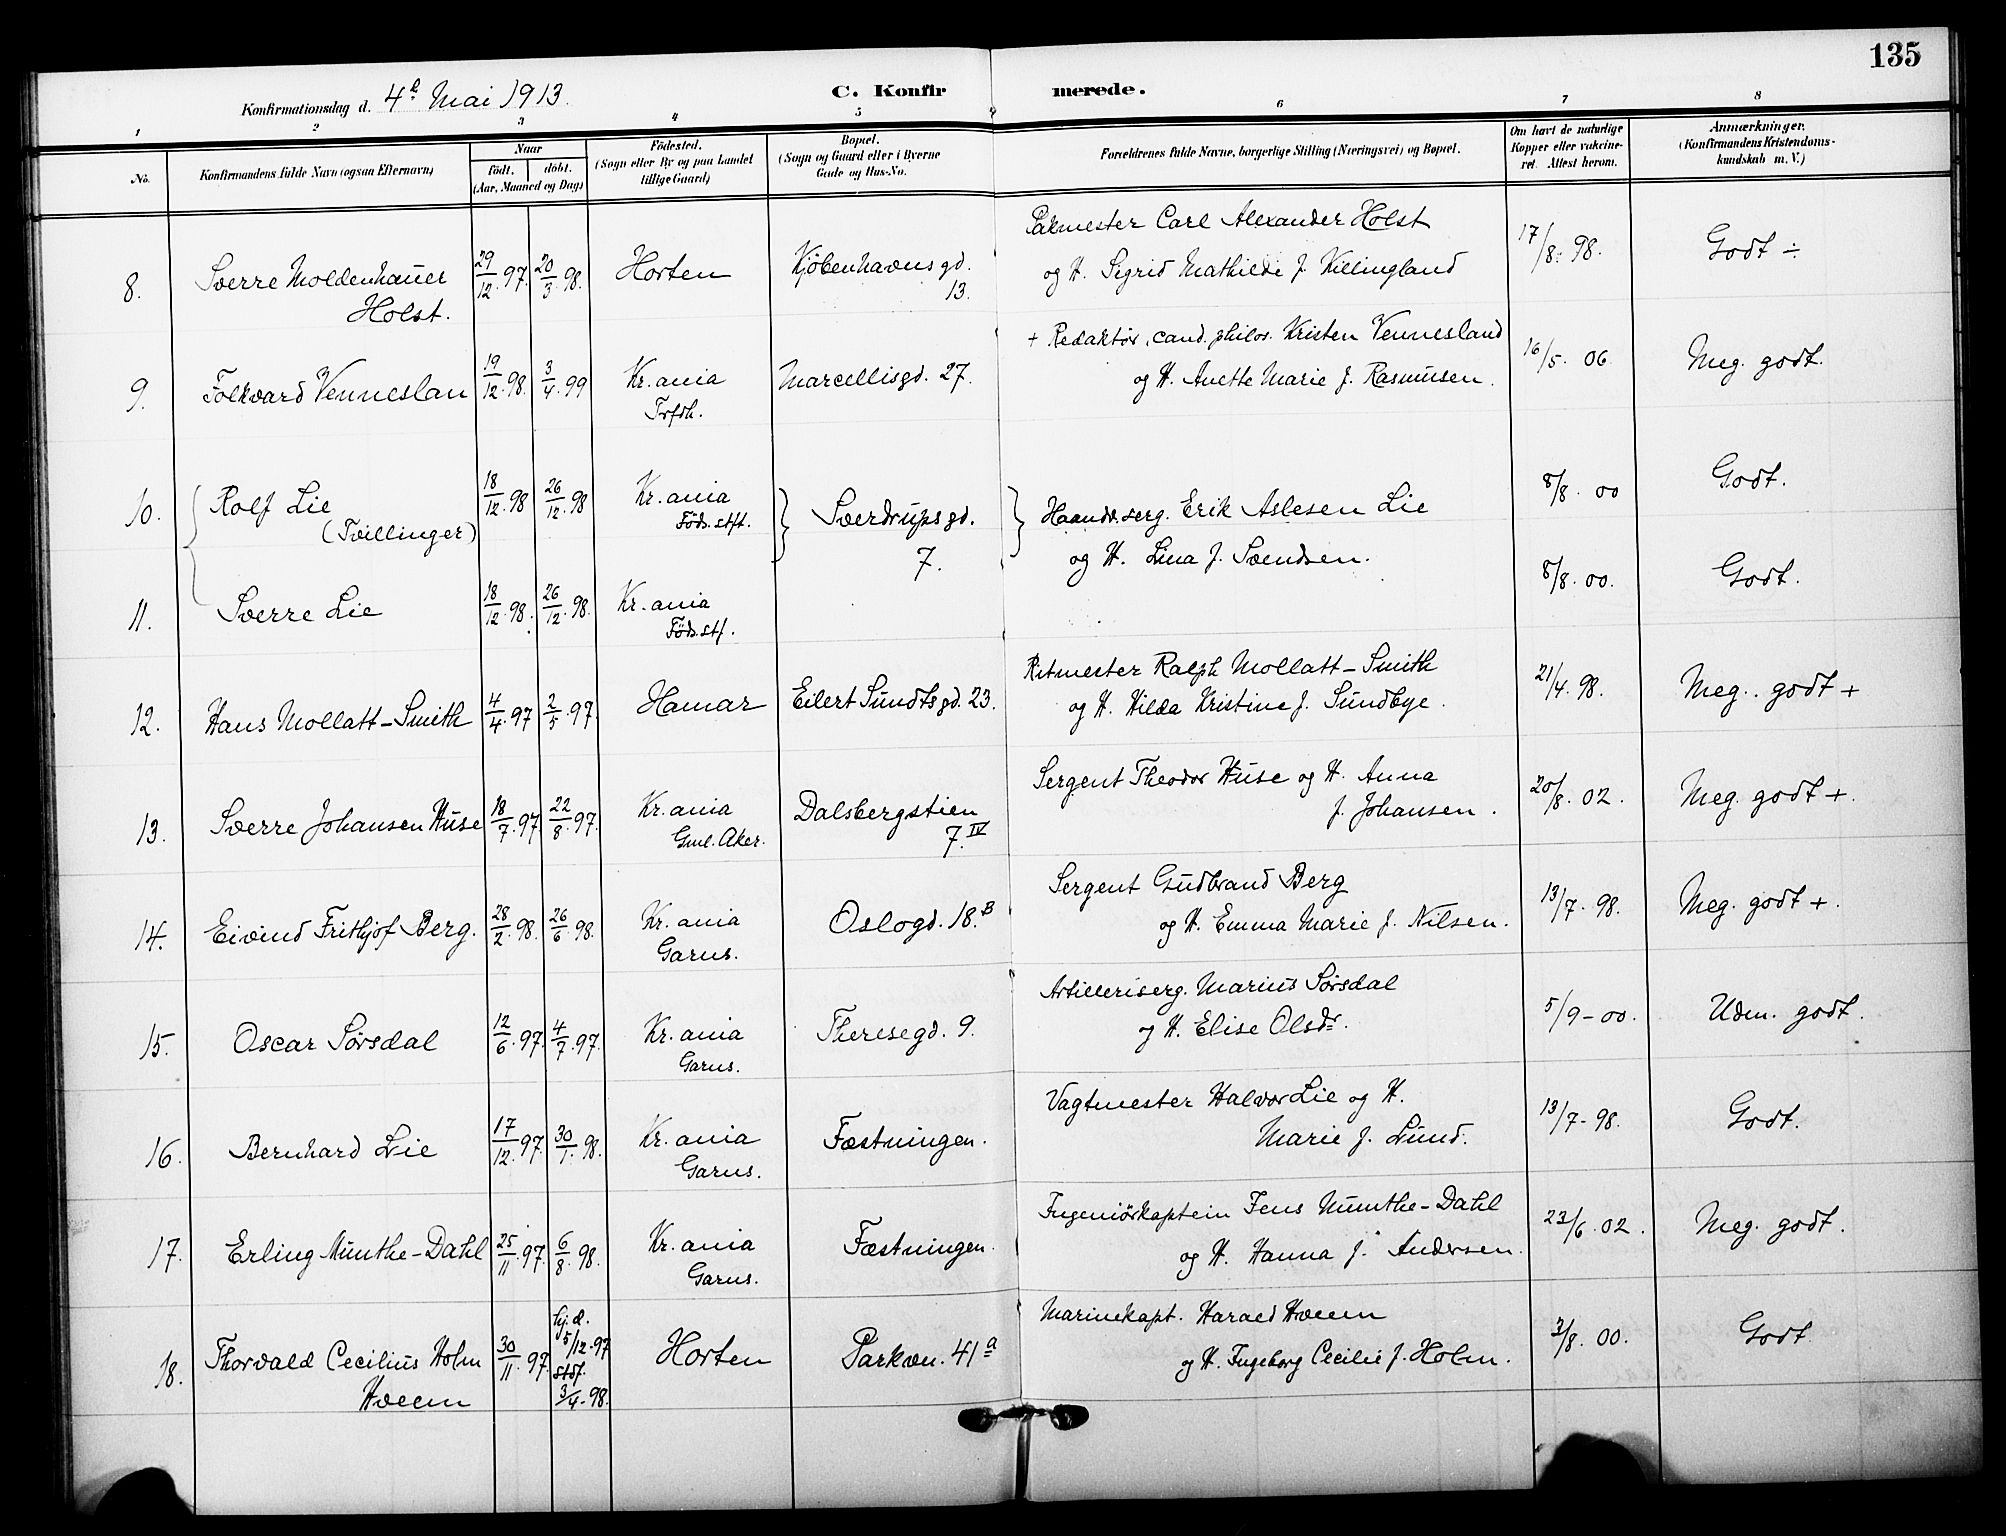 135
Konfirmationsdag d. 4de Mai 1913.
C. Konfirmerede.
1 2 3 4 5 6 7 8
No.
Konfirmandens fulde Navn (ogsaa Efternavn)
Naar
født. døbt.
(Aar, Maaned og Dag)
Fødested.
(Sogn eller By og paa Landet
tillige Gaard)
Bopæl.
(Sogn og Gaard eller i Byerne
Gade og Hus-No.
Forældrenes fulde Navne, borgerlige Stilling (Næringsvei) og Bopæl.
Om havt de naturlige
Kopper eller vakcine-
ret. Attest herom.
Anmærkninger.
(Konfirmandens Kristendoms-
kundskab m. V.)
8. Sverre Moldenhauer 29/12.97 20/3.98 Horten Kjøbenhavnsgd. Pakmester Carl Alexander Holst 17/8.98. Godt ÷
Holst. 13. og H. Sigrid Mathilde f. Killingland
9. Folkvard Venneslan 19/12.98. 3/4.99 Kr.ania Marcellisgd. 27. + Redaktør, cand. philos. Kristen Vennesland 16/5.06. Meg. godt.
Trfdh. og H. Anette Marie f. Rasmusen.
10. Rolf Lie 18/12.98 26/12.98 Kr.ania Sverdrupsgd. Haandv.serg. Erik Aslesen Lie 8/8.00 Godt.
(Tvillinger) Føds.stft. 7. og H. Lina f. Svendsen.
11. Sverre Lie 18/12.98. 26/12.98. Kr.ania 8/8.00. Godt.
Føds.stf.
12. Hans Mollatt-Smith 4/4.97 2/5.97. Hamar Eilert Sundtsgd. 23. Ritmester Ralph Mollatt-Smith 21/4.98. Meg. godt +
og H. Hilda Kristine f. Sundbye.
13. Sverre Johansen Huse 18/7.97 22/8.97. Kr.ania Dalsbergstien Sergent Theodor Huse og H. Anna 20/8.02. Meg. godt +.
Gml. Aker. 7.IV f. Johansen.
14. Eivind Frithjof Berg. 28/2.98. 26/6.98. Kr.ania Oslogd. 18.B Sergent Gudbrand Berg 13/7.98. Meg. godt +.
Garns. og H. Emma Marie f. Nilsen.
15. Oscar Sørsdal 12/6.97. 4/7.97. Kr.ania Theresegd. 9. Artilleriserg. Marius Sørsdal 5/9-00. Udm. godt.
Garns. og H. Elise Olsdr.
16. Bernhard Lie 17/12.97. 30/1.98. Kr.ania Fæstningen. Vagtmester Halvor Lie og H. 13/7-98. Godt.
Garns. Marie f. Lund.
17. Erling Munthe-Dahl 25/11.97. 6/8.98. Kr.ania Fæstningen. Ingeniørkaptein Jens Munthe-Dahl 23/6.02. Meg. godt.
Garns. og H. Hanna f. Andersen.
18. Thorvald Cecilius Holm 30/11.97. hj.d. 5/12.97 stdf. 3/4-98. Horten Parkvn. 41a Marinekapt. Harald Hveem 3/8.00. Godt
Hveem og H. Ingeborg Cecilie f. Holm.